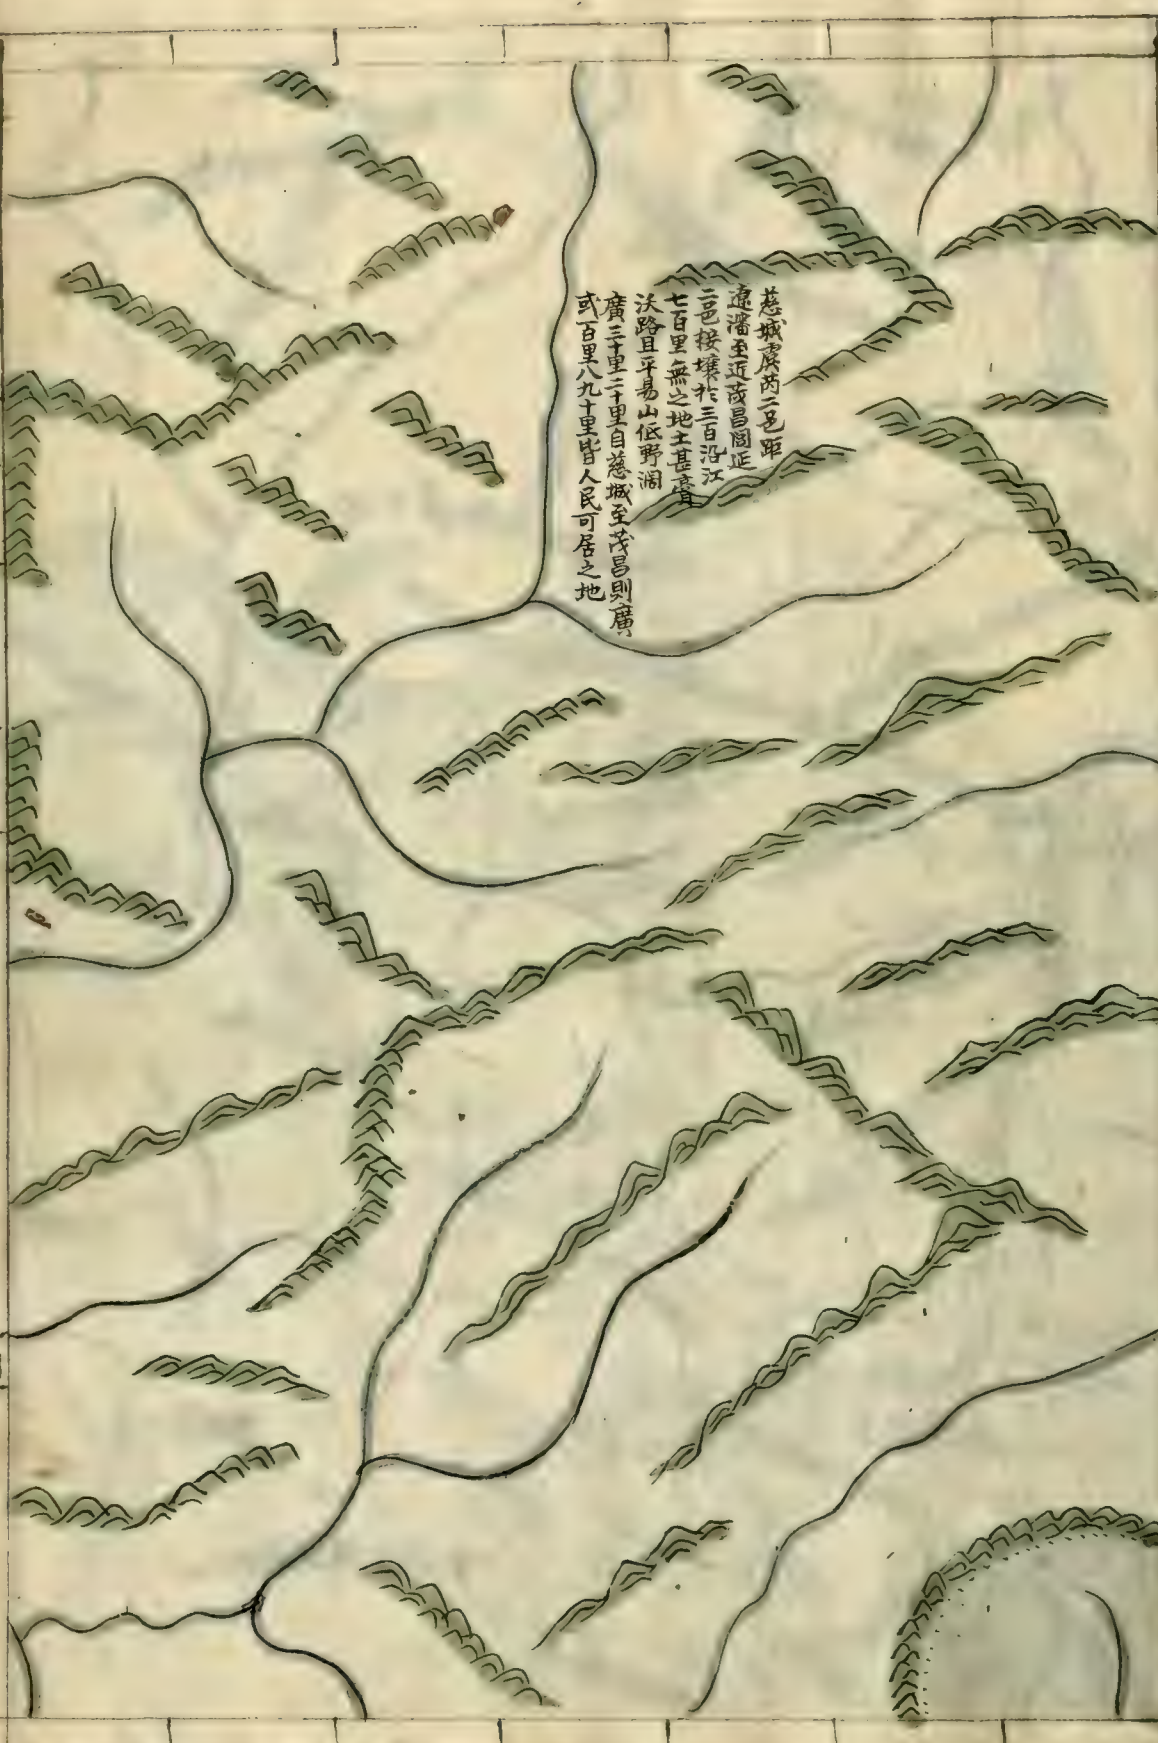 慈城虞芮二邑距
遼瀋至近茂昌閭延
二邑接壤於三百沿江
七百里無之地土甚膏
沃路且平易山低野濶
廣三十里二十里自慈城至茂昌則廣
或百里八九十里皆人民可居之地